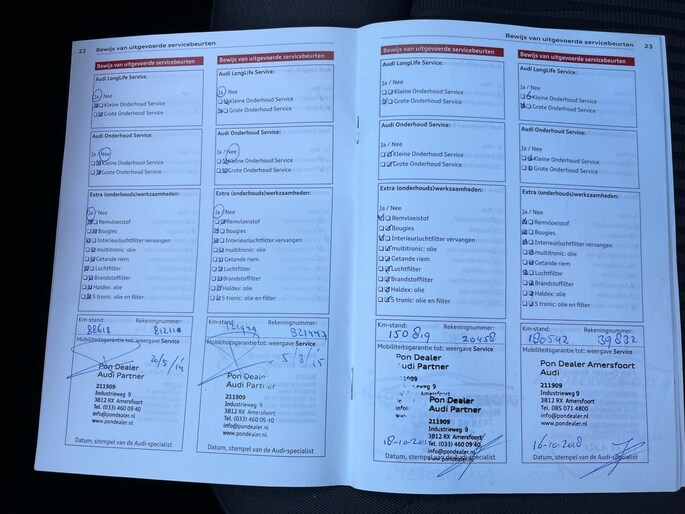 22 Bewijs van uitgevoerde servicebeurten
Bewijs van uitgevoerde servicebeurten
Audi LongLife Service:
Ja / Nee
Kleine Onderhoud Service
Grote Onderhoud Service
Audi Onderhoud Service:
Ja / Nee
Kleine Onderhoud Service
Grote Onderhoud Service
Extra (onderhouds)werkzaamheden:
Ja / Nee
Remvloeistof
Bougies
Interieurluchtfilter vervangen
multitronic: olie
Getande riem
Luchtfilter
Brandstoffilter
Haldex: olie
S tronic: olie en filter
Km-stand: Rekeningnummer:
88618
Mobiliteitsgarantie tot: weergave Service
20/5/14
Pon Dealer
Audi Partner
211909
Industrieweg 9
3812 RX Amersfoort
Tel. (033) 460 09 40
info@pondealer.nl
www.pondealer.nl
Datum, stempel van de Audi-specialist
Bewijs van uitgevoerde servicebeurten
Audi LongLife Service:
Ja / Nee
Kleine Onderhoud Service
Grote Onderhoud Service
Audi Onderhoud Service:
Ja / Nee
Kleine Onderhoud Service
Grote Onderhoud Service
Extra (onderhouds)werkzaamheden:
Ja / Nee
Remvloeistof
Bougies
Interieurluchtfilter vervangen
multitronic: olie
Getande riem
Luchtfilter
Brandstoffilter
Haldex: olie
S tronic: olie en filter
Km-stand: Rekeningnummer:
Mobiliteitsgarantie tot: weergave Service
5/3/15
Pon Dealer
Audi Partner
211909
Industrieweg 9
3812 RX Amersfoort
Tel. (033) 460 09 40
info@pondealer.nl
www.pondealer.nl
Datum, stempel van de Audi-specialist
Bewijs van uitgevoerde servicebeurten 23
Bewijs van uitgevoerde servicebeurten
Audi LongLife Service:
Ja / Nee
Kleine Onderhoud Service
Grote Onderhoud Service
Audi Onderhoud Service:
Ja / Nee
Kleine Onderhoud Service
Grote Onderhoud Service
Extra (onderhouds)werkzaamheden:
Ja / Nee
Remvloeistof
Bougies
Interieurluchtfilter vervangen
multitronic: olie
Getande riem
Luchtfilter
Brandstoffilter
Haldex: olie
S tronic: olie en filter
Km-stand: Rekeningnummer:
150819 20458
Mobiliteitsgarantie tot: weergave Service
Pon Dealer
Audi Partner
211909
Pon Dealer
Audi Partner
211909
Industrieweg 9
3812 RX Amersfoort
Tel. (033) 460 09 40
info@pondealer.nl
www.pondealer.nl
Datum, stempel van de Audi-specialist
Bewijs van uitgevoerde servicebeurten
Audi LongLife Service:
Ja / Nee
Kleine Onderhoud Service
Grote Onderhoud Service
Audi Onderhoud Service:
Ja / Nee
Kleine Onderhoud Service
Grote Onderhoud Service
Extra (onderhouds)werkzaamheden:
Ja / Nee
Remvloeistof
Bougies
Interieurluchtfilter vervangen
multitronic: olie
Getande riem
Luchtfilter
Brandstoffilter
Haldex: olie
S tronic: olie en filter
Km-stand: Rekeningnummer:
180542 39832
Mobiliteitsgarantie tot: weergave Service
Pon Dealer Amersfoort
Audi
211909
Industrieweg 9
3812 RX Amersfoort
Tel. 085 071 4800
info@pondealer.nl
www.pondealer.nl
Datum, stempel van de Audi-specialist